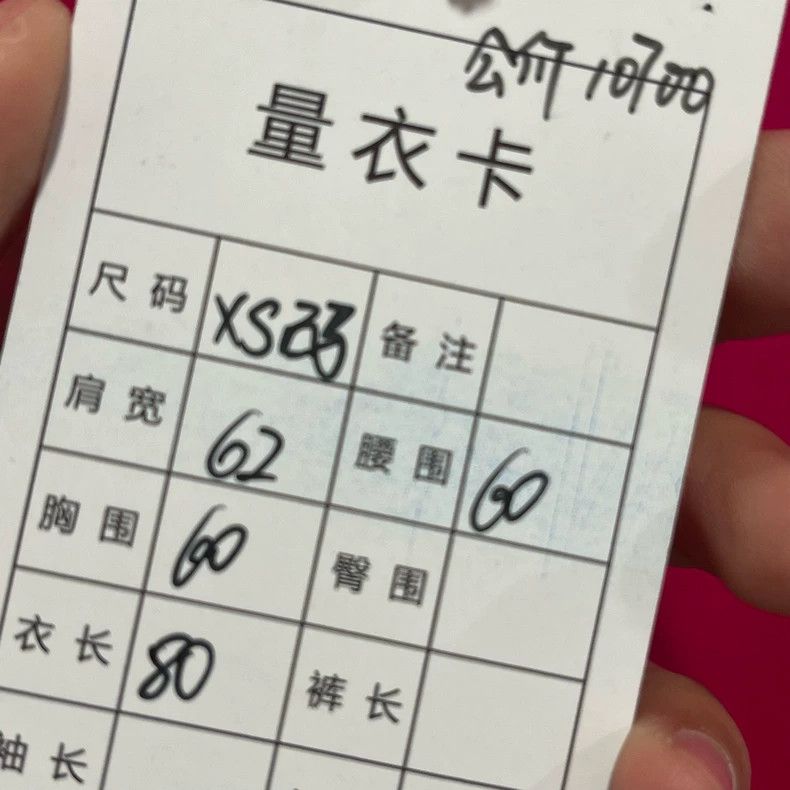 公斤 10700
量衣卡
尺码 XS码 备注
肩宽 62 腰围 60
胸围 60 臀围
衣长 80 裤长
袖长